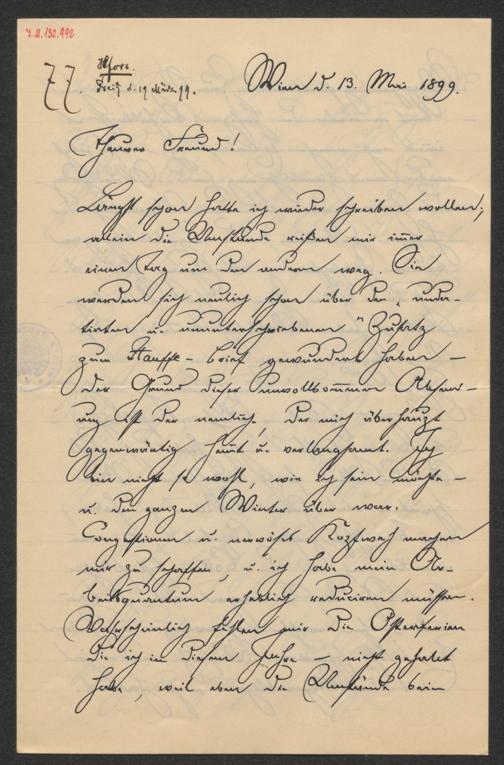 I.N. 132.992
77.
Wien d. 13. Mai 1899.
Theurer Freund!
Längst schon hatte ich wieder schreiben wollen;
allein die Umstände reißen mir immer
einen Tag um den andern weg. Sie
werden sich neulich schon über den „undatirten
u. ununterschriebenen" Zusatz
zum Hauffe-brief gewundert haben —
der Grund dieser unvollkommenen Absendung
ist der nemliche der mich überhaupt
gegenwärtig hemt u. verlangsamt. Ich
bin nicht so wohl, wie ich sein möchte —
u. den ganzen Winter über war.
Congestionen u. nervöses Kopfweh machen
mir zu schaffen, u. ich habe mein Arbeitsquantum
erheblich reduciren müssen.
Wahrscheinlich fehlen mir die Osterferien
die ich in diesem Jahre — nicht gehabt
habe, weil eben die Umstände beim